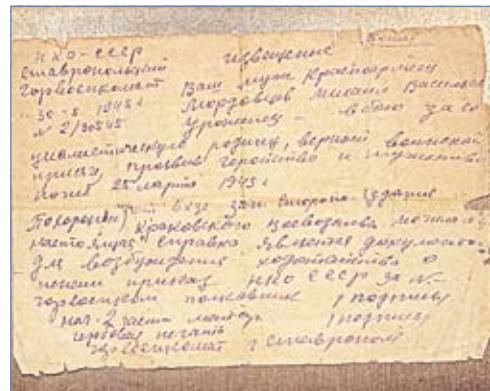 Копия
НКО-СССР Извещение
Ставропольский
Горвоенкомат Ваш муж Красноармеец
30-5 1945 г Мордовцев Михаил Васильев
№ 2/30545 Уроженец — в бою за со
циалистическую родину, верный воинской
присяге, проявив геройство и мужество
погиб 25 марта 1945 г
Похоронен) зап. стороне здания
Краковского воеводства могила
настоящая справка является документом
для возбуждения ходатайства о
пенсии приказ НКО СССР за №-
горвоенком полковник /подпись
нач. 2 части майор /подпись
гербовая печать
горвоенкомат г Ставрополь